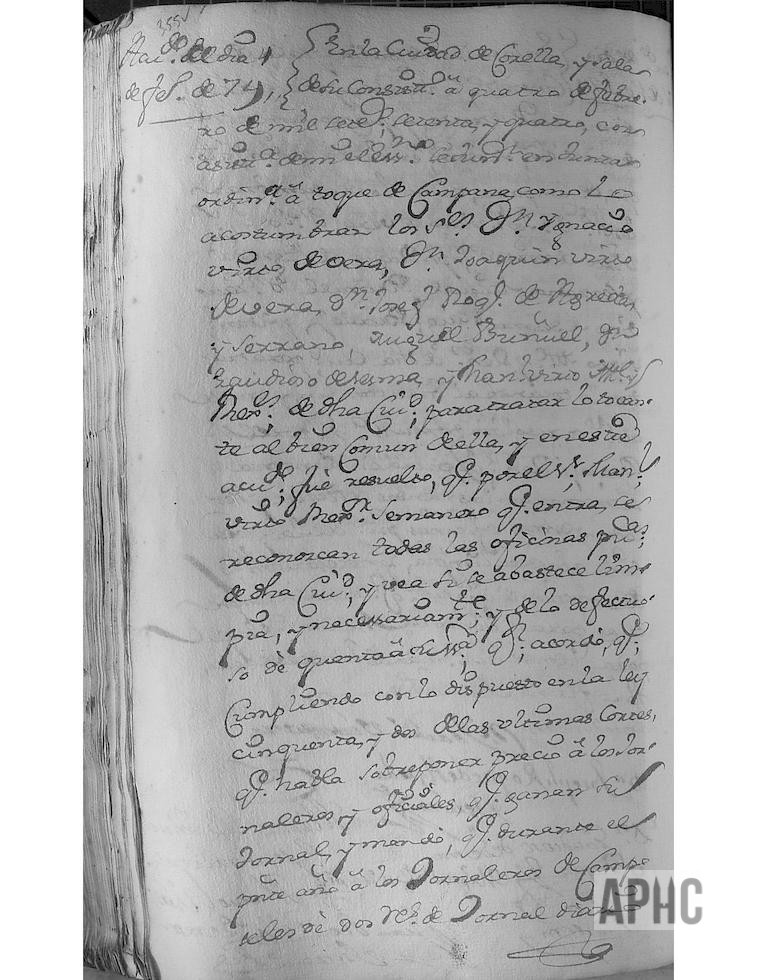 355
Aud.ª del dia 4
de feb.º de 74,
En la Ciudad de Corella, y sala
de su Consistt.º â quatro de febre-
ro de mil setez.s setenta, y quatro, con
asist.ª de mi el ess.no se Junt.n en Junta
ordin.ª â toque de Campana, como lo
acostumbran los S.res D.n Ygnacio
virto de vera, D.n Joaquin virto
de vera, D.n Joseph Rog.l de Agreda,
y serrano Miguel Buñuel, D.n
Gaudioso de sesma, y Man.l virto Alld.s
Rexr.s de dha Ciu.d; para tratar lo tocan-
te al bien Comun de ella, y en este
acu.do; fuè resuelto, q.e por el S.r Man.l
virto Rexr. semanero q.e entra, se
reconozcan todas las oficinas pu.cas
de dha Ciu.d, y vea si se abastece lim-
pia, y necessariam.te; y de lo defectuo-
so dè quenta â su ss.ª; q.n acordò, q.e
Cumpliendo con lo dispuesto en la ley
cinquenta, y dos de las ultimas Cortes,
q.e habla sobre poner precio â los Jor-
naleros, y oficiales, q.e ganan su
Jornal, y mandò, q.e durante el
pnte año â los Jornaleros de Campo
se les dè dos r.s de Jornal diario
APHC